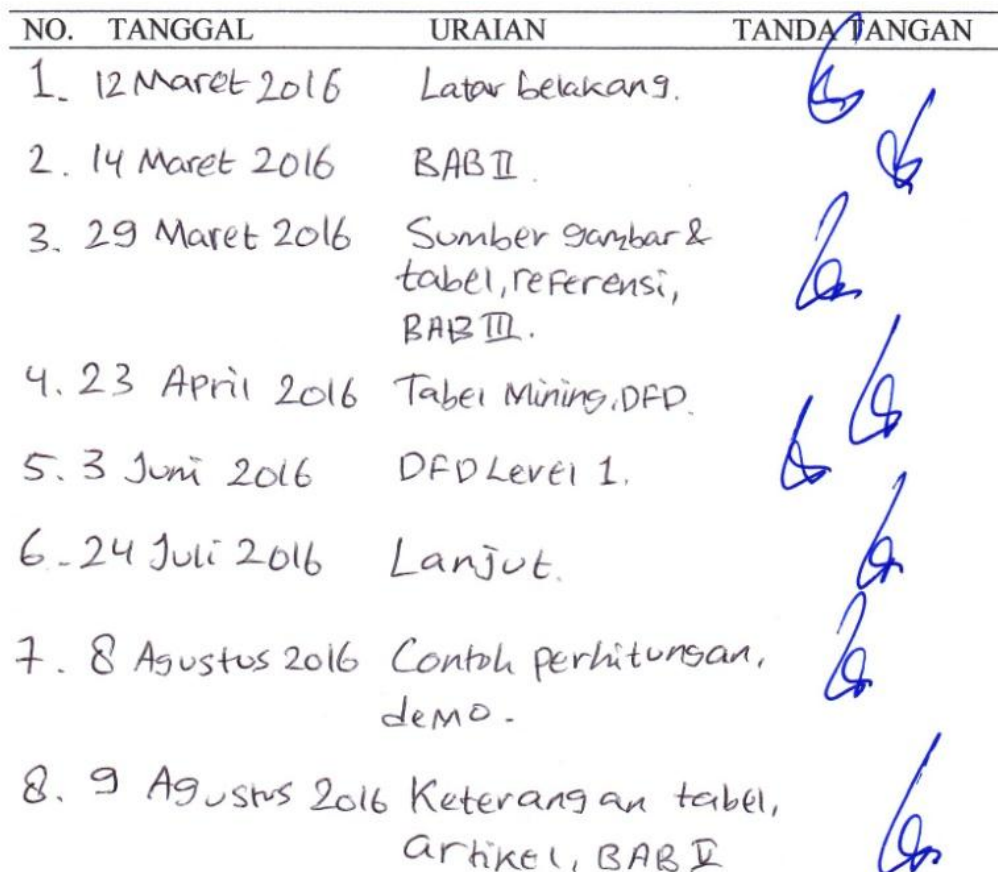 NO. TANGGAL URAIAN TANDA TANGAN
1. 12 Maret 2016 Latar belakang.
2. 14 Maret 2016 BAB II.
3. 29 Maret 2016 Sumber gambar &
tabel, referensi,
BAB III.
4. 23 April 2016 Tabel Mining, DFD.
5. 3 Juni 2016 DFD Level 1.
6. 24 Juli 2016 Lanjut.
7. 8 Agustus 2016 Contoh perhitungan,
demo.
8. 9 Agustus 2016 Keterangan tabel,
artikel, BAB V